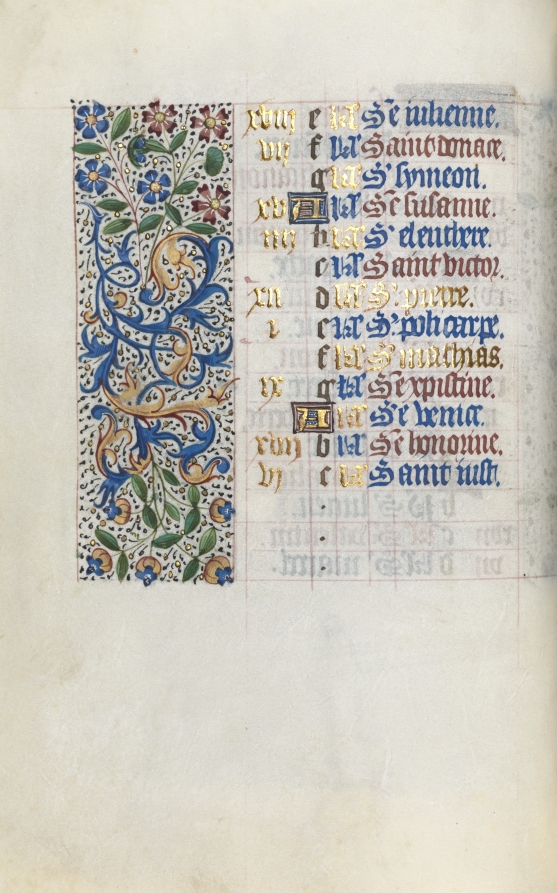 xviij e kl' Ste iulienne.
vij f kl' Saint donace.
g kl' St symeon.
xv A kl' Ste susanne.
iiij b kl' St eleuthere.
c kl' Saint victor.
xij d kl' St pierre.
i e kl' St policarpe.
f kl' St mathias.
ix g kl' Ste xpistine.
A kl' Ste venice.
xvij b kl' Ste honorine.
vj c kl' Saint iust.